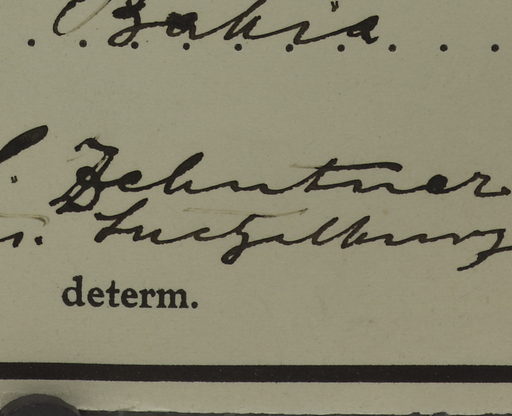 Bahia
Zehntner
n. Luetzelburg
determ.